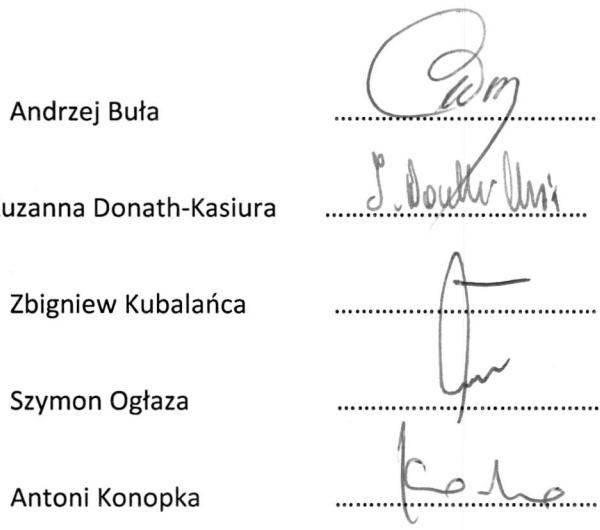 Andrzej Buła ....................................
uzanna Donath-Kasiura ....................................
Zbigniew Kubalańca ....................................
Szymon Ogłaza ....................................
Antoni Konopka ....................................